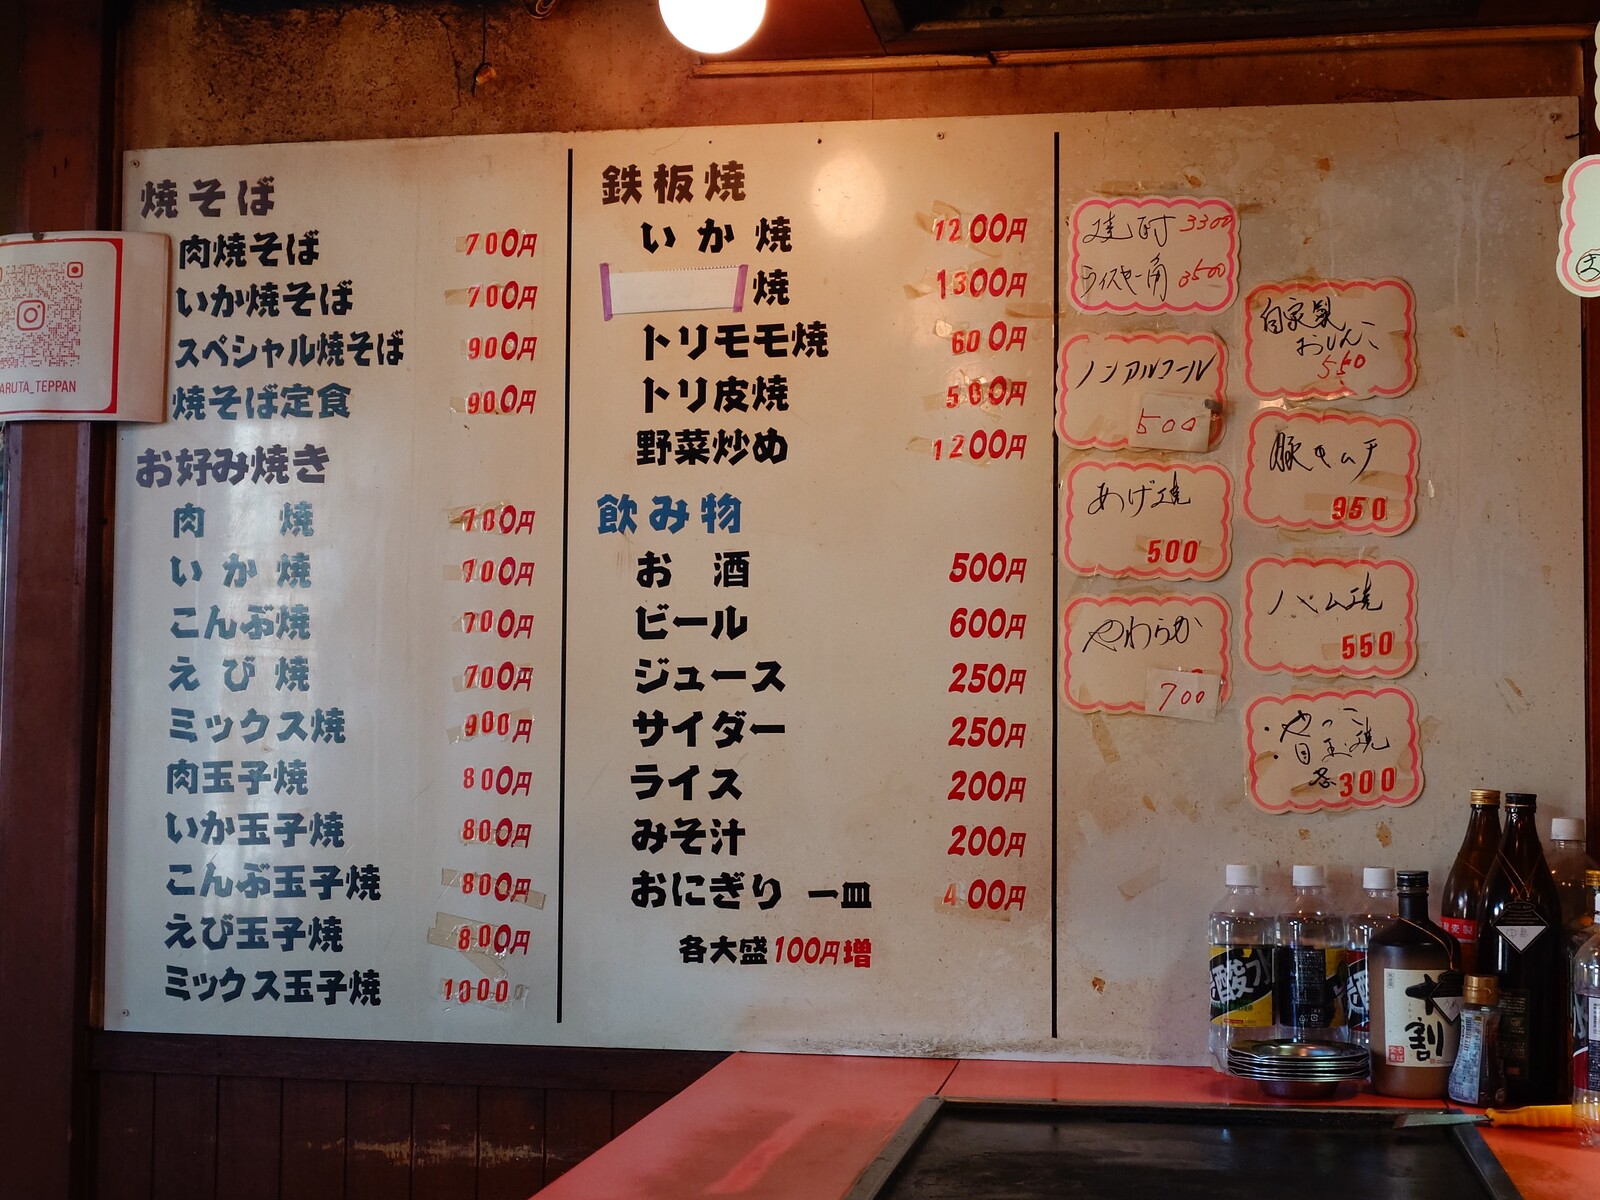 ARUTA_TEPPAN
焼そば
肉焼そば 700円
いか焼そば 700円
スペシャル焼そば 900円
焼そば定食 900円
お好み焼き
肉焼 700円
いか焼 700円
こんぶ焼 700円
えび焼 700円
ミックス焼 900円
肉玉子焼 800円
いか玉子焼 800円
こんぶ玉子焼 800円
えび玉子焼 800円
ミックス玉子焼 1000
鉄板焼
いか焼 1200円
焼 1300円
トリモモ焼 600円
トリ皮焼 500円
野菜炒め 1200円
飲み物
お酒 500円
ビール 600円
ジュース 250円
サイダー 250円
ライス 200円
みそ汁 200円
おにぎり 一皿 400円
各大盛100円増
焼酎 3300
ウイスキー角 3500
ノンアルコール
500
あげ焼
500
やわらか
700
自家製
おしんこ
550
豚キムチ
950
ハム焼
550
・やっこ
・目玉焼
各300
酸水
十割